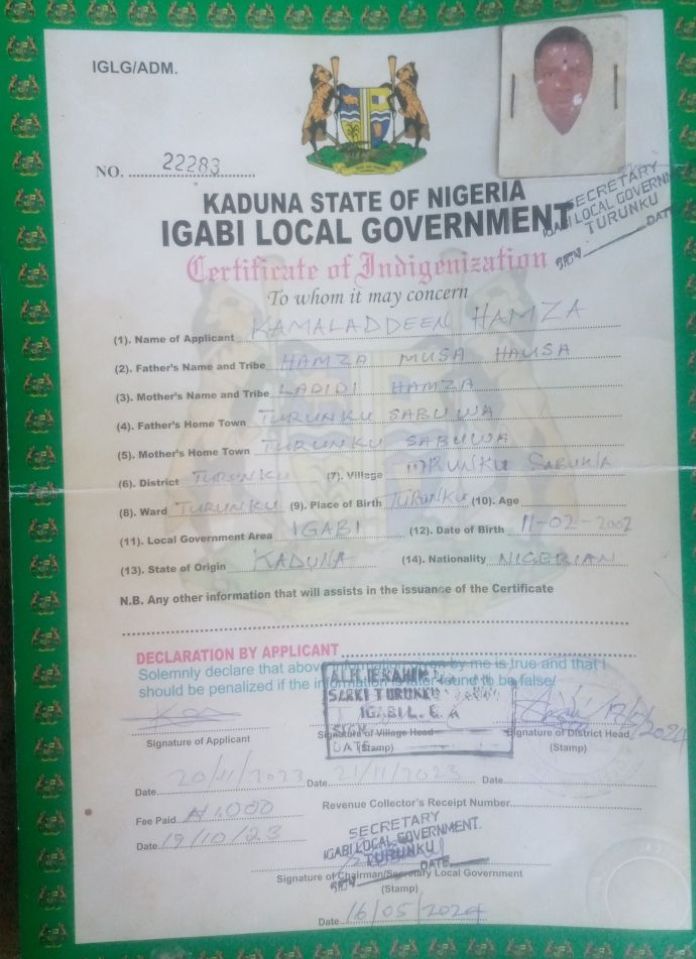 IGLG/ADM.
NO. 22283
KADUNA STATE OF NIGERIA
IGABI LOCAL GOVERNMENT
SECRETARY
IGABI LOCAL GOVERNM
TURUNKU
SIGN DATE
Certificate of Indigenization
To whom it may concern
(1). Name of Applicant KAMALADDEEN HAMZA
(2). Father's Name and Tribe HAMZA MUSA HAUSA
(3). Mother's Name and Tribe LADIDI HAMZA
(4). Father's Home Town TURUNKU SABUWA
(5). Mother's Home Town TURUNKU SABUWA
(6). District TURUNKU (7). Village TURUNKU SABUWA
(8). Ward TURUNKU (9). Place of Birth TURUNKU (10). Age
(11). Local Government Area IGABI (12). Date of Birth 11-02-2002
(13). State of Origin KADUNA (14). Nationality NIGERIAN
N.B. Any other information that will assists in the issuance of the Certificate
DECLARATION BY APPLICANT
Solemnly declare that above information given by me is true and that I
should be penalized if the information is later found to be false/
ALH. IBRAHIM
SARKI TURUNKU
IGABI L. G. A
SIGN
DATE
Signature of Applicant Signature of Village Head Signature of District Head
(Stamp) (Stamp)
Date 20/11/2023 Date 21/11/2023 Date
Fee Paid ₦1,000 Revenue Collector's Receipt Number
Date 19/10/23
SECRETARY
IGABI LOCAL GOVERNMENT.
TURUNKU
SIGN DATE
Signature of Chairman/Secretary Local Government
(Stamp)
Date 16/05/2024